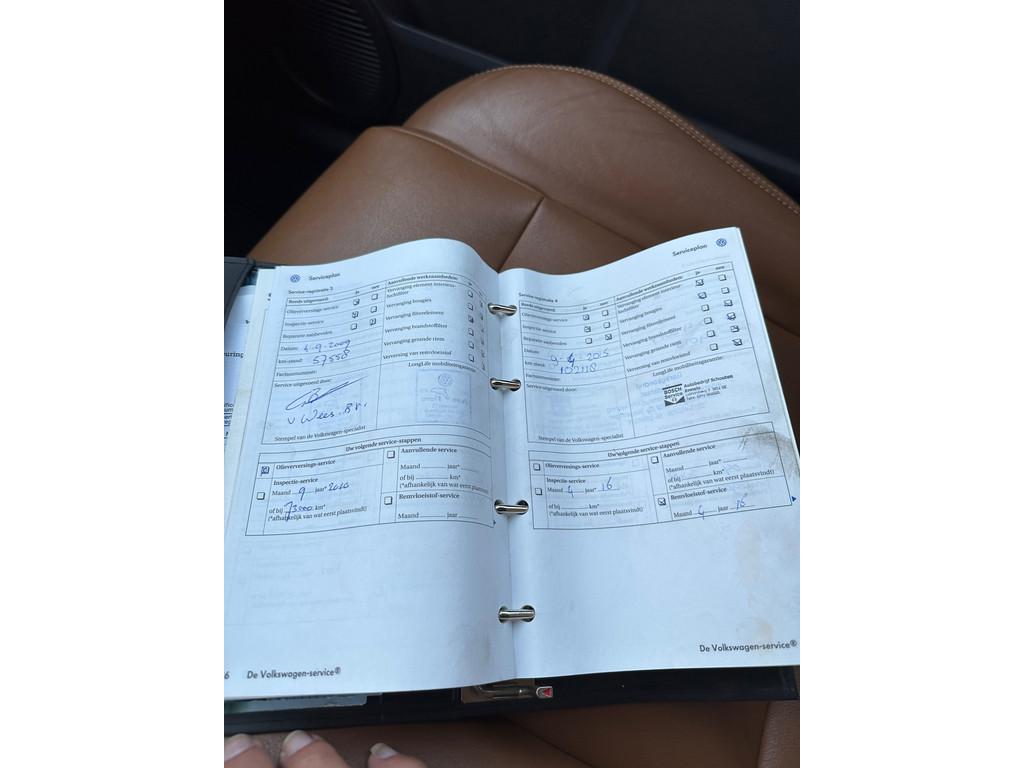 Serviceplan
Service-registratie 3
Reeds uitgevoerd: ja nee
Olieverversings-service
Inspectie-service
Reparatie aanbevolen
Datum: 4-9-2009
km-stand: 57558
Factuurnummer:
Service uitgevoerd door:
v Wees. B.V.
Stempel van de Volkswagen-specialist
Aanvullende werkzaamheden: ja
Vervanging element interieur-
luchtfilter
Vervanging bougies
Vervanging filterelement
Vervanging brandstoffilter
Vervanging getande riem
Verversing van remvloeistof
LongLife mobiliteitsgarantie:
Uw volgende service-stappen
Olieverversings-service
Inspectie-service
Maand 9 jaar* 2010
of bij 73000 km*
(*afhankelijk van wat eerst plaatsvindt)
Aanvullende service
Maand jaar*
of bij km*
(*afhankelijk van wat eerst plaatsvindt)
Remvloeistof-service
Maand jaar
6 De Volkswagen-service®
Serviceplan
Service-registratie 4
Reeds uitgevoerd: ja nee
Olieverversings-service
Inspectie-service
Reparatie aanbevolen
Datum: 9-4-2015
km-stand: 102118
Factuurnummer:
Service uitgevoerd door:
Stempel van de Volkswagen-specialist
Aanvullende werkzaamheden: ja nee
Vervanging element interieur-
luchtfilter
Vervanging bougies
Vervanging filterelement
Vervanging brandstoffilter
Vervanging getande riem
Verversing van remvloeistof
LongLife mobiliteitsgarantie:
BOSCH
Service
Autobedrijf Schouten
Uw volgende service-stappen
Olieverversings-service
Inspectie-service
Maand 4 jaar* 16
of bij km*
(*afhankelijk van wat eerst plaatsvindt)
Aanvullende service
Maand jaar*
of bij km*
(*afhankelijk van wat eerst plaatsvindt)
Remvloeistof-service
Maand 4 jaar 16
De Volkswagen-service®